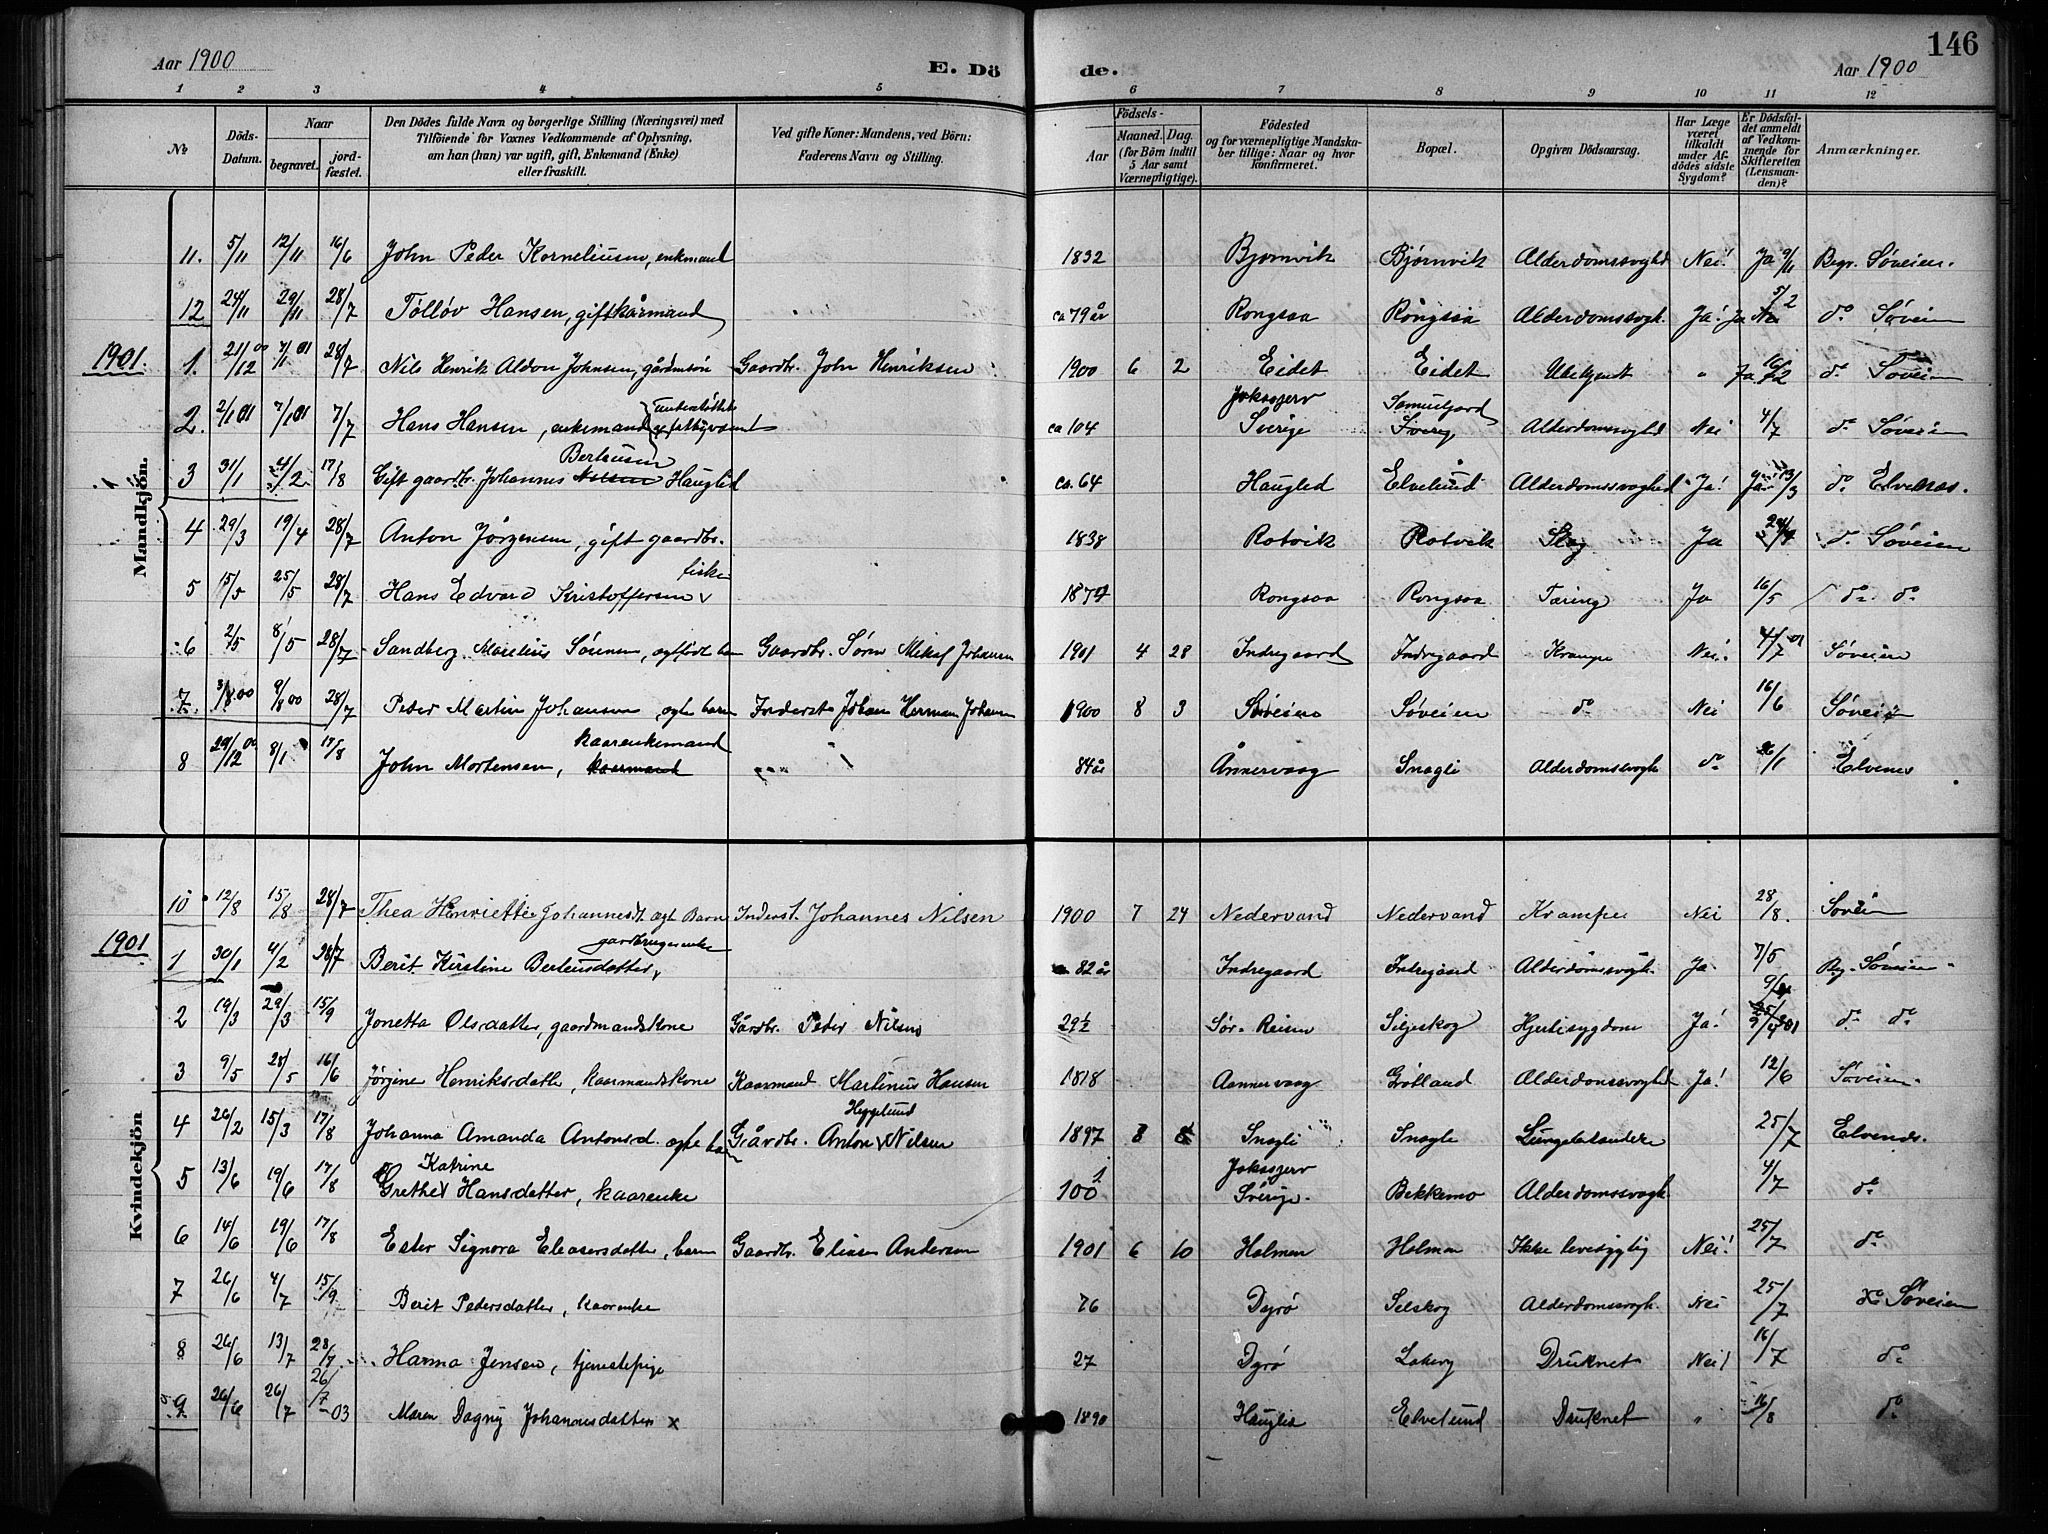 146
Aar 1900
E. Dö
de.
Aar 1900
1 2 3 4 5 6 7 8 9 10 11 12
No
Döds-Datum.
Naar
begravet.
jord-fæstet.
Den Dödes fulde Navn og borgerlige Stilling (Næringsvei) med Tilföiende for Voxnes Vedkommende af Oplysning, om han (hun) var ugift, gift, Enkemand (Enke) eller fraskilt.
Ved gifte Koner: Mandens, ved Börn: Faderens Navn og Stilling.
Födsels-
Aar
Maaned. Dag.
(for Börn indtil 5 Aar samt Værnepligtige).
Födested og for værnepligtige Mandskaber tillige: Naar og hvor konfirmeret.
Bopæl.
Opgiven Dödsaarsag.
Har Læge været tilkaldt under Afdödes sidste Sygdom?
Er Dödsfaldet anmeldt af Vedkommende for Skifteretten (Lensmanden)?
Anmærkninger.
Mandkjön.
11. 5/11 12/11 16/6 John Peder Korneliusen, enkemand 1832 Bjørnvik Bjørnvik Alderdomssvaghed Nei! Ja 9/11 Begr. Søveien.
12 24/11 29/11 28/7 Tølløv Hansen, gift kårmand ca 79 år Rongsaa Rongsaa Alderdomssvagh. Ja! Ja Nei 5/2 do Søveien
1901.
1. 21/12 00 7/1 01 28/7 Nils Henrik Aldon Johnsen, gårdmsön Gaardbr. John Henriksen 1900 6 2 Eidet Eidet Ubekjent " Ja do Søveien
2. 2/1 01 7/1 01 7/7 Hans Hansen, enkemand understöttet af fattigvæsnet ca 104 Joksgjerv Sverige Alderdomssvaghed Nei 4/7 do Søveien
3 31/1 4/2 17/8 Gift gaardbr. Johannes Nilsen Berteusen Hauglid ca. 64 Hauglid Elvelund Alderdomssvaghed Ja! Ja 13/3 do Elvenes.
4 29/3 19/4 28/7 Anton Jørgensen, gift gaardbr. 1838 Rotvik Rotvik Slag Ja do Søveien
5 15/5 25/5 28/7 Hans Edvard Kristoffersen fisker 1877 Rongsaa Rongsaa Tæring Ja 16/5 do. do
6 2/5 8/5 28/7 Sandberg Marelius Sörensen, ægtefødt barn Gaardbr. Sørn Mikal Johansen 1901 4 28 Indregaard Indregaard Krampe Nei. 4/7 01 Søveien
7. 3/8 00 9/8 00 28/7 Peder Martin Johansen, ægte barn Inderst Johan Herman Johansen 1900 8 3 Søveien Søveien do Nei 16/6 Søveien
8 29/12 00 8/1 17/8 John Mortensen, kaarmand kaarenkemand 84 år Ånnervaag Snogli Alderdomssvagh do 26/1 Elvenes
Kvindekjön
10 12/8 15/8 28/7 Thea Henriette Johannesdt. ægt Barn Inderst. Johannes Nilsen 1900 7 24 Nedervand Nedervand Krampe Nei 28/8. Søveien
1901
1 30/1 4/2 28/7 Berit Kirstine Berteusdatter, gardbrugerenke 82 år Indregaard Indregaard Alderdomssvagh. Ja 7/5 Beg. Søveien
2 19/3 29/3 15/9 Jonetta Olsdatter, gaardmandskone Gårdbr. Peder Nilsen 29½ Sør-Reisen Seljeskog Hjertesygdom Ja! do do
3 9/5 28/5 16/6 Jørgine Henriksdatter, kaarmandskone Kaarmand Martinus Hansen 1818 Aannervaag Grölland Alderdomssvaghed Ja! 12/6 Søveien.
4 26/2 15/3 17/8 Johanna Amanda Antonsd. ægte barn Gårdbr. Anton Heggelund Nilsen 1897 8 Snogli Snogli Lungebetændelse 25/7 Elvenes.
5 13/6 19/6 17/8 Grethe Katrine Hansdatter, kaarenke 100 Joksgjerv Sverige. Bekkemo Alderdomssvagh. 4/7 do
6 14/6 19/6 17/8 Ester Signora Eleasersdatter, barn Gaardbr. Eliaser Andersen 1901 6 10 Holmen Holmen Ikke levedygtig Nei! 25/7 do
7 26/6 4/7 15/9 Berit Pedersdatter, kaarenke 76 Dyrø Selskog Alderdomssvagh. Nei 25/7 do Søveien
8 26/6 13/7 28/7 Hanna Jensen, tjenestepige 27 Dyrø Loberg Druknet Nei! 16/7 do
9 26/6 26/7 26/7 - 03 Maren Dagny Johannesdatter x 1890 Hauglid Elvelund Druknet " 16/8 do